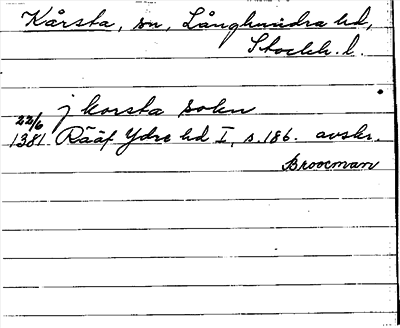 Kårsta, sn, Långhundra hd,
Stockh. l.
j korsta sokn
22/6 1381 Rääf Ydre hd I, s. 186. avskr.
Broocman